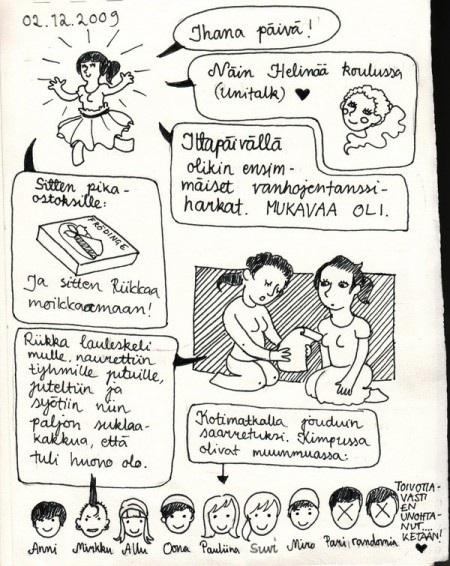 02.12.2009
Ihana päivä!
Näin Helinää koulussa
(Unitalk) ♥
Iltapäivällä
olikin ensim-
mäiset vanhojentanssi-
harkat. MUKAVAA OLI.
Sitten pika-
ostoksille:
FRÖDINGE
Ja sitten Riikkaa
moikkaamaan!
Riikka lauleskeli
mulle, naurettiin
tyhmille jutuille,
juteltiin ja
syötiin niin
paljon suklaa-
kakkua, että
tuli huono olo.
Kotimatkalla jouduin
saarretuksi. Kimpussa
olivat muunmuassa:
Anni Minkku Allu Oona Pauliina Suvi Miro Pari randomia
TOIVOTTA-
VASTI
EN
UNOHTA-
NUT
KETÄÄN!
♥